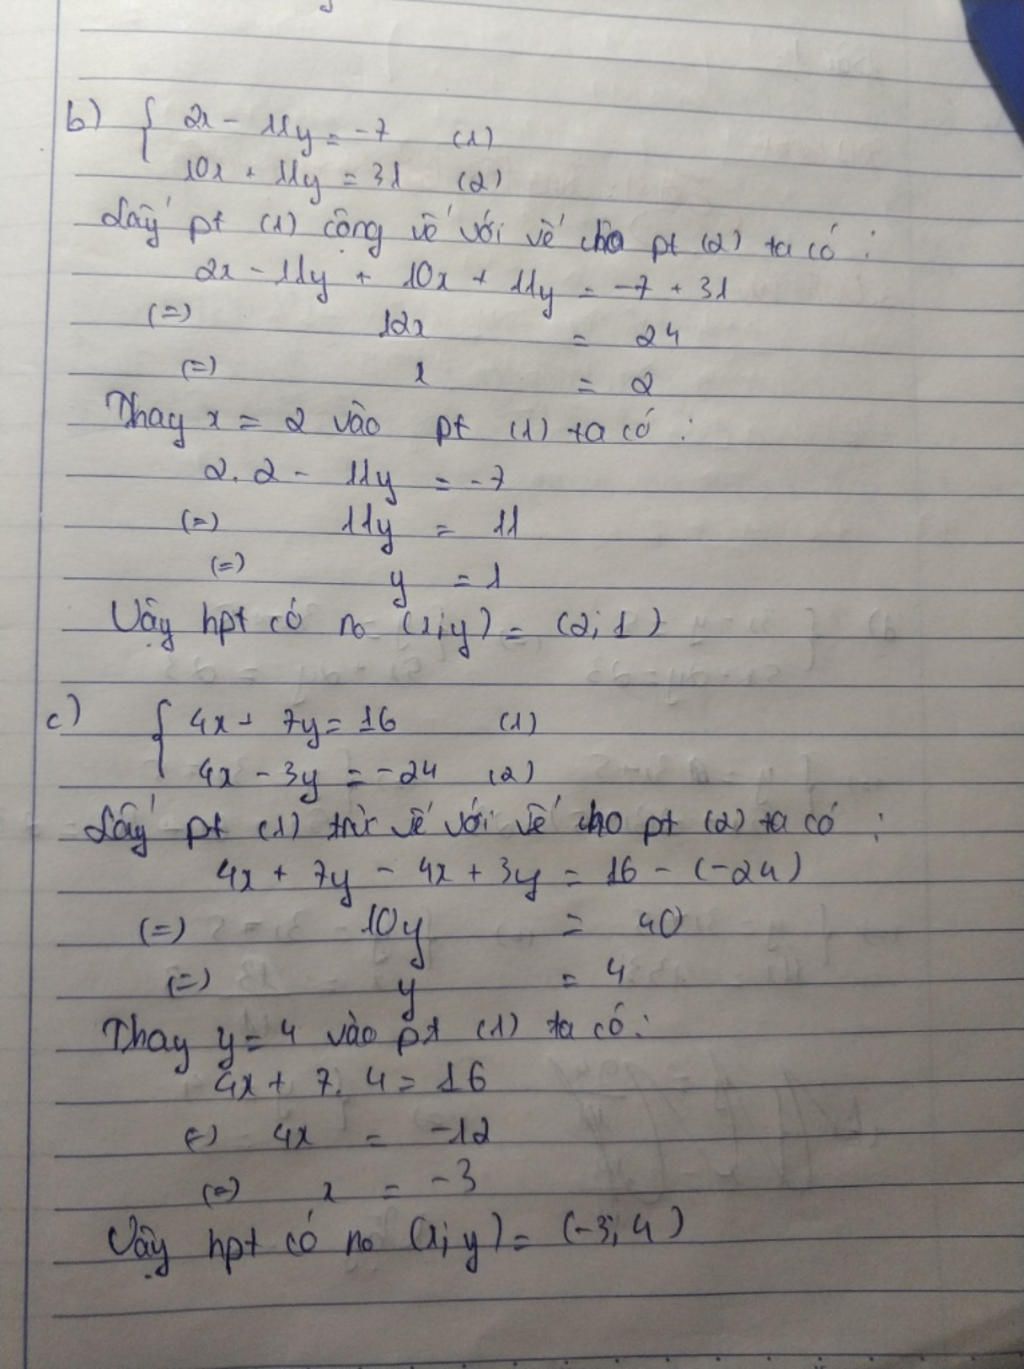 b) { 2x - 11y = -7 (1)
10x + 11y = 31 (2)
Lấy pt (1) cộng vế với vế cho pt (2) ta có :
2x - 11y + 10x + 11y = -7 + 31
(=) 12x = 24
(=) x = 2
Thay x = 2 vào pt (1) ta có :
2.2 - 11y = -7
(=) 11y = 11
(=) y = 1
Vậy hpt có no (x;y) = (2;1)
c) { 4x + 7y = 16 (1)
4x - 3y = -24 (2)
Lấy pt (1) trừ vế với vế cho pt (2) ta có :
4x + 7y - 4x + 3y = 16 - (-24)
(=) 10y = 40
(=) y = 4
Thay y = 4 vào pt (1) ta có :
4x + 7.4 = 16
(=) 4x = -12
(=) x = -3
Vậy hpt có no (x;y) = (-3;4)